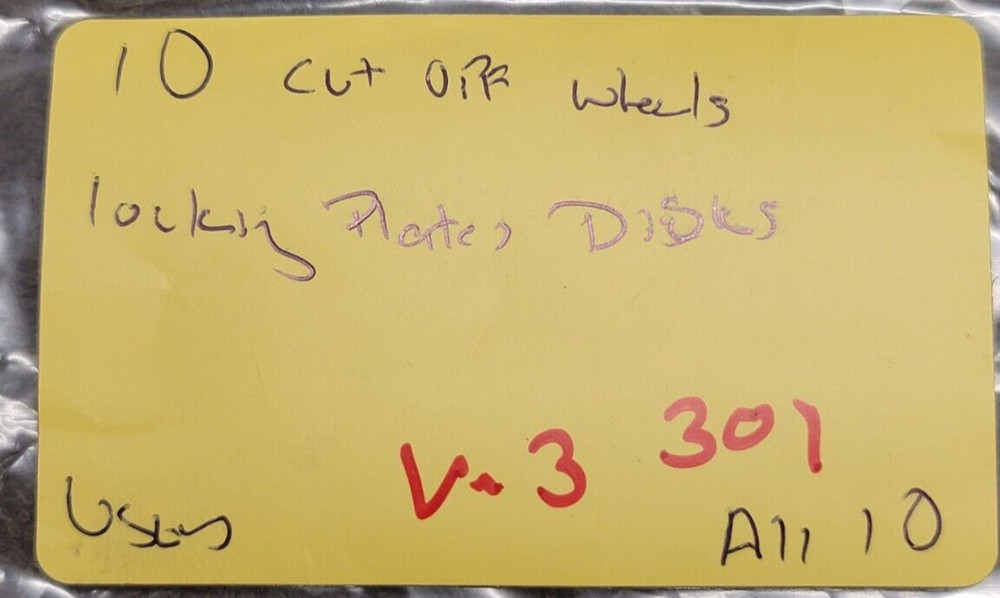 10 Cut Off Wheels
locking Plates Disks
V-3 301
All 10